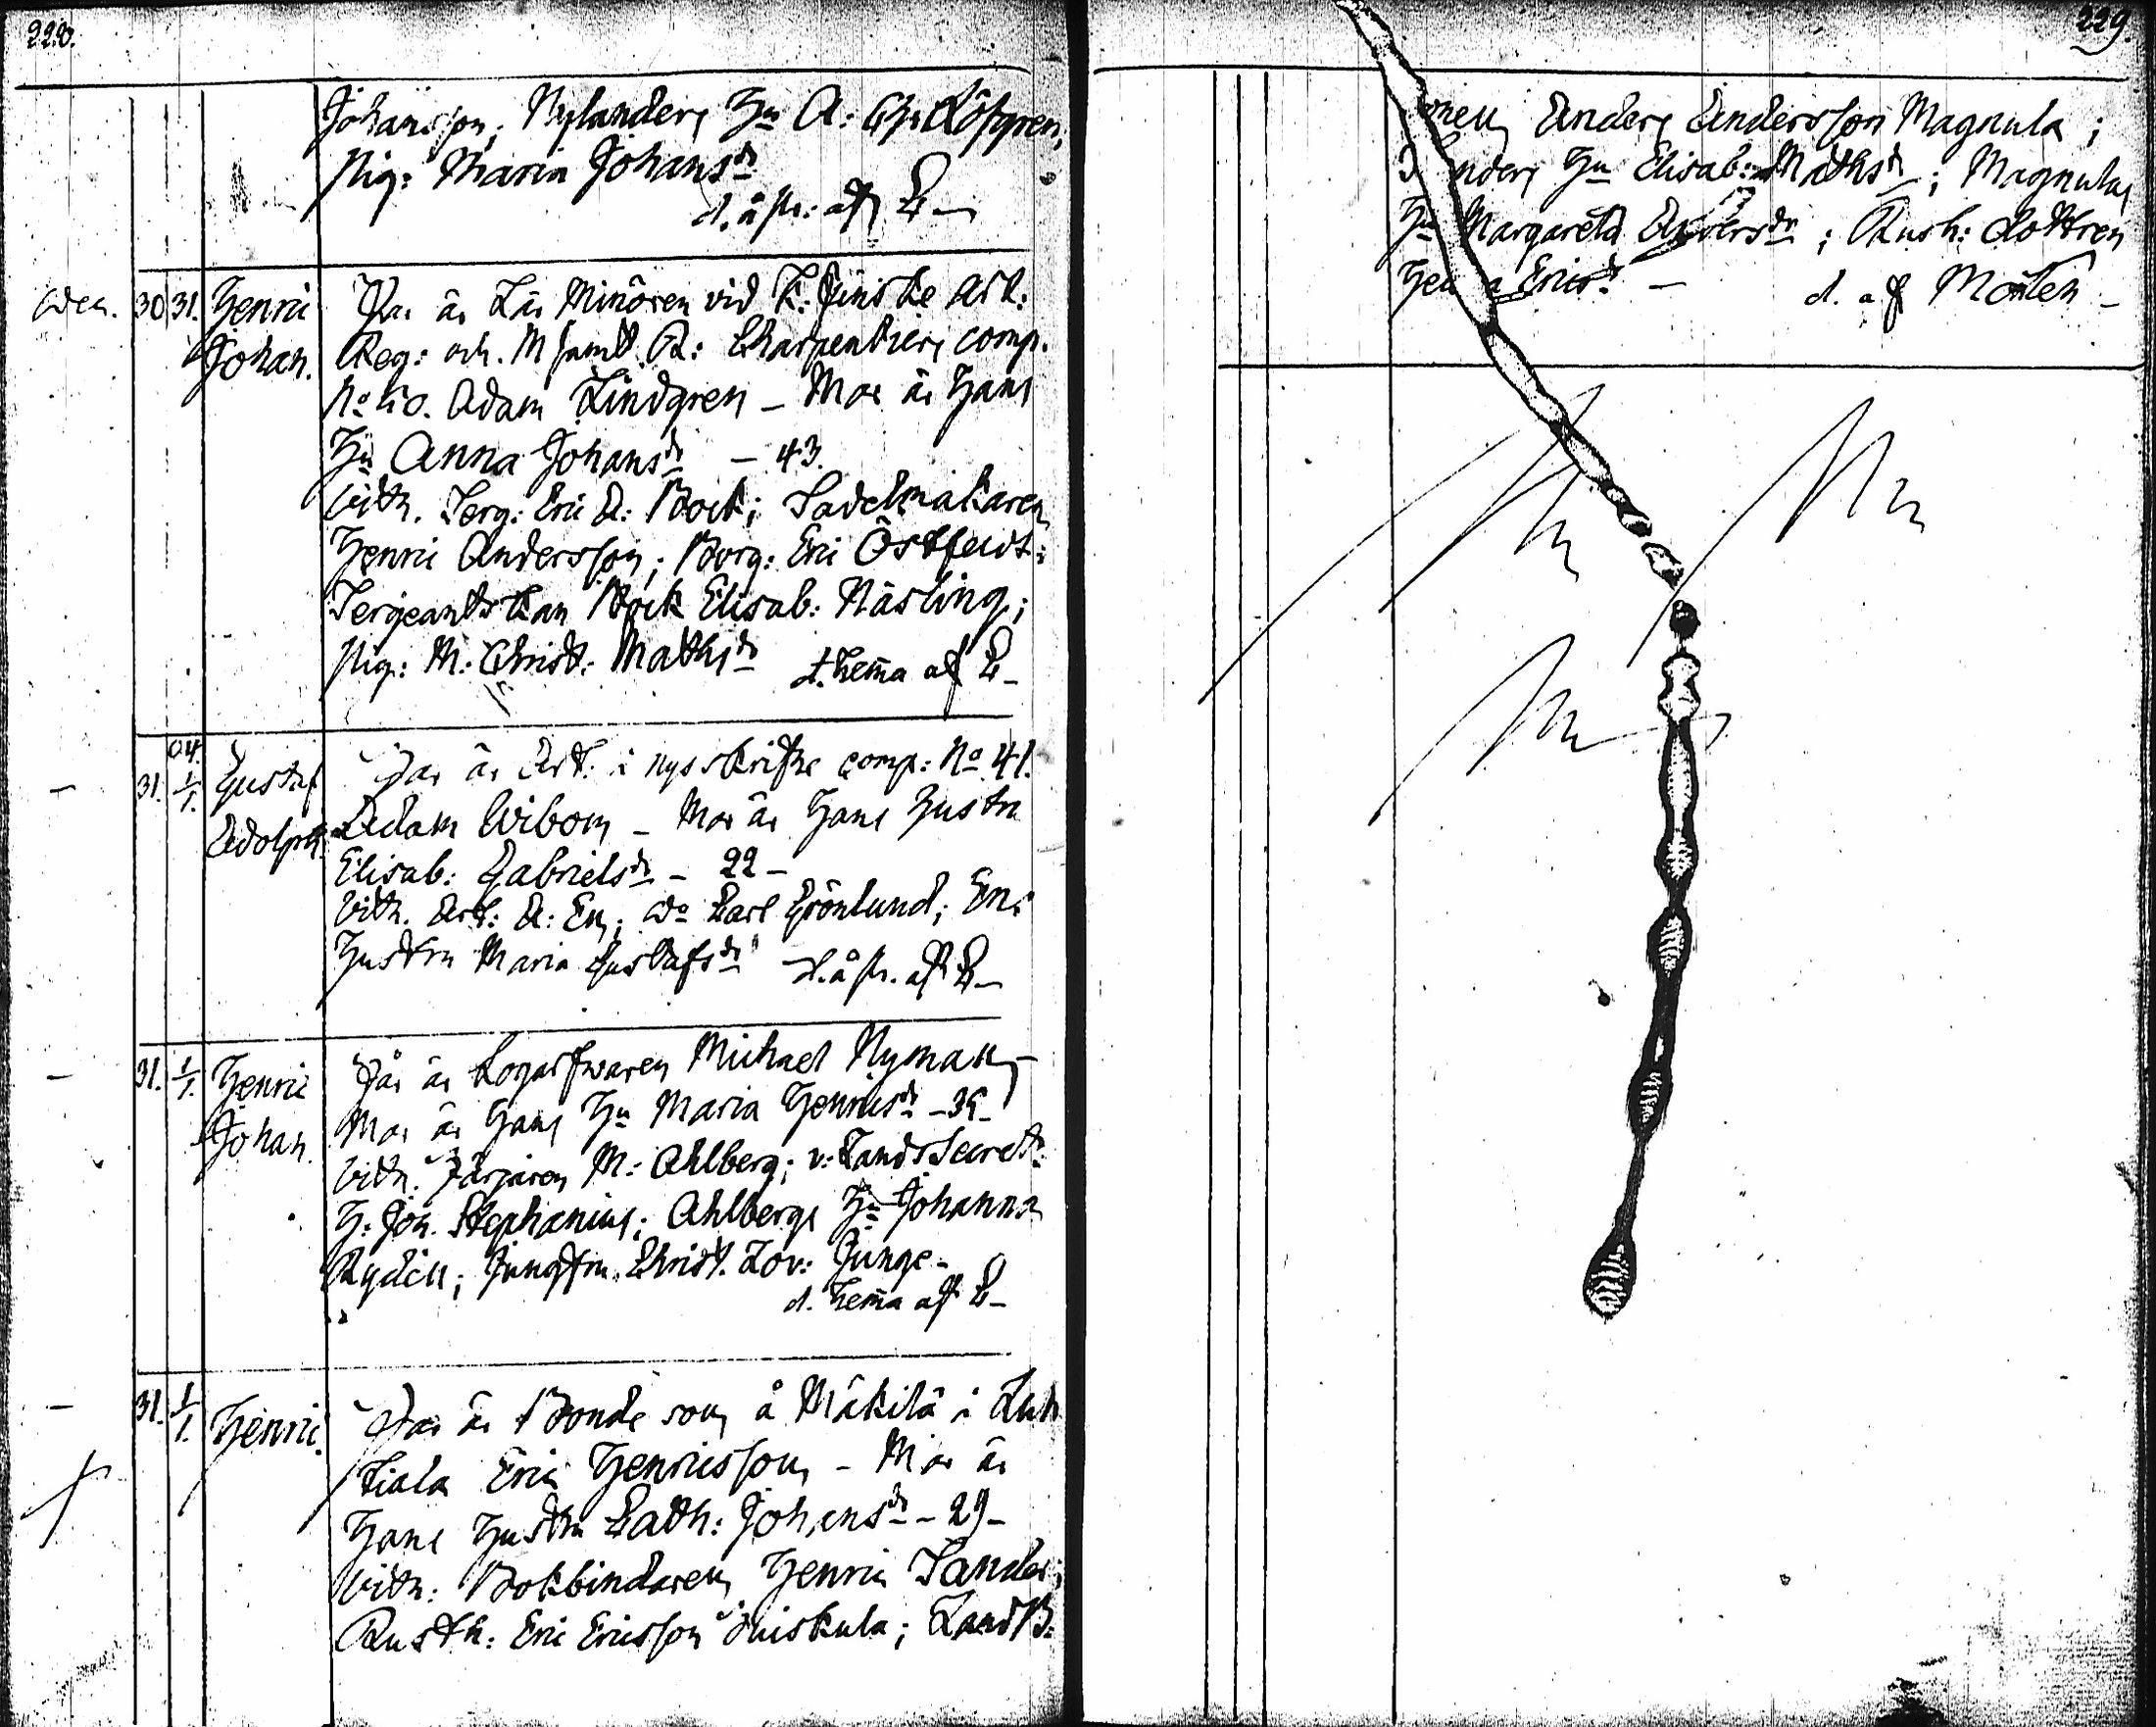 228.
Johansson; Nylanders Hu A: Chr Löfgren;
Pig: Maria Johansdr
d. å pr: af L—
Dec. 30 31. Henric Johan.
Far är Lär Minören vid K: Finske Art:
Reg: och. A: Charpentiers comp.
No Adam Lindgren – Mor är Hans
Hu Anna Johansdr – 43.
Vitn. Serg: Eric A: Bock; Sadelmakaren
Henric Andersson; Borg: Eric Östfeldt;
Sergeantskan Bock Elisab: Näsling;
Pig: M: Christ: Mathsdr d. hema af L—
04.
– 31. 1/1. Gustaf Adolph.
Far är Art: i nysskrifne comp: No 41.
Adam Wibom – Mor är Hans hustru
Elisab: Gabrielsdr – 22 –
Vitn. Art: A: En; do Carl Grönlund; Ens
Hustru Maria Gustafsdr d. å pr. af L—
– 31. 1/1. Henric Johan.
Får är Logarfwaren Michael Nyman –
Mor är Hans Hu Maria Henricsdr
Vitn. Färjaren M: Ahlberg; v: Lands Secret:
H: Joh. Stephanius; Ahlbergs Hu Johanna
Rydén; Jungfru Christ. Lov: Junge –
d. hema af L—
– 31. 1/1. Henric.
Far är Bonde son å Mäkilä i Luh
tiala Eric Henricsson – Mor är
Hans Hustru Cath: Johansdr – 29 –
Vitn: Bokbindaren Henric Sander;
Rusth: Eric Ericsson Juiskula; Land B:
229.
Anders Andersson Magnula;
Hu Elisab: Mathsdr; Magnulas
Hu Margareta Andersdr; Rush: dottren
Ericsdr – d. af Molin –